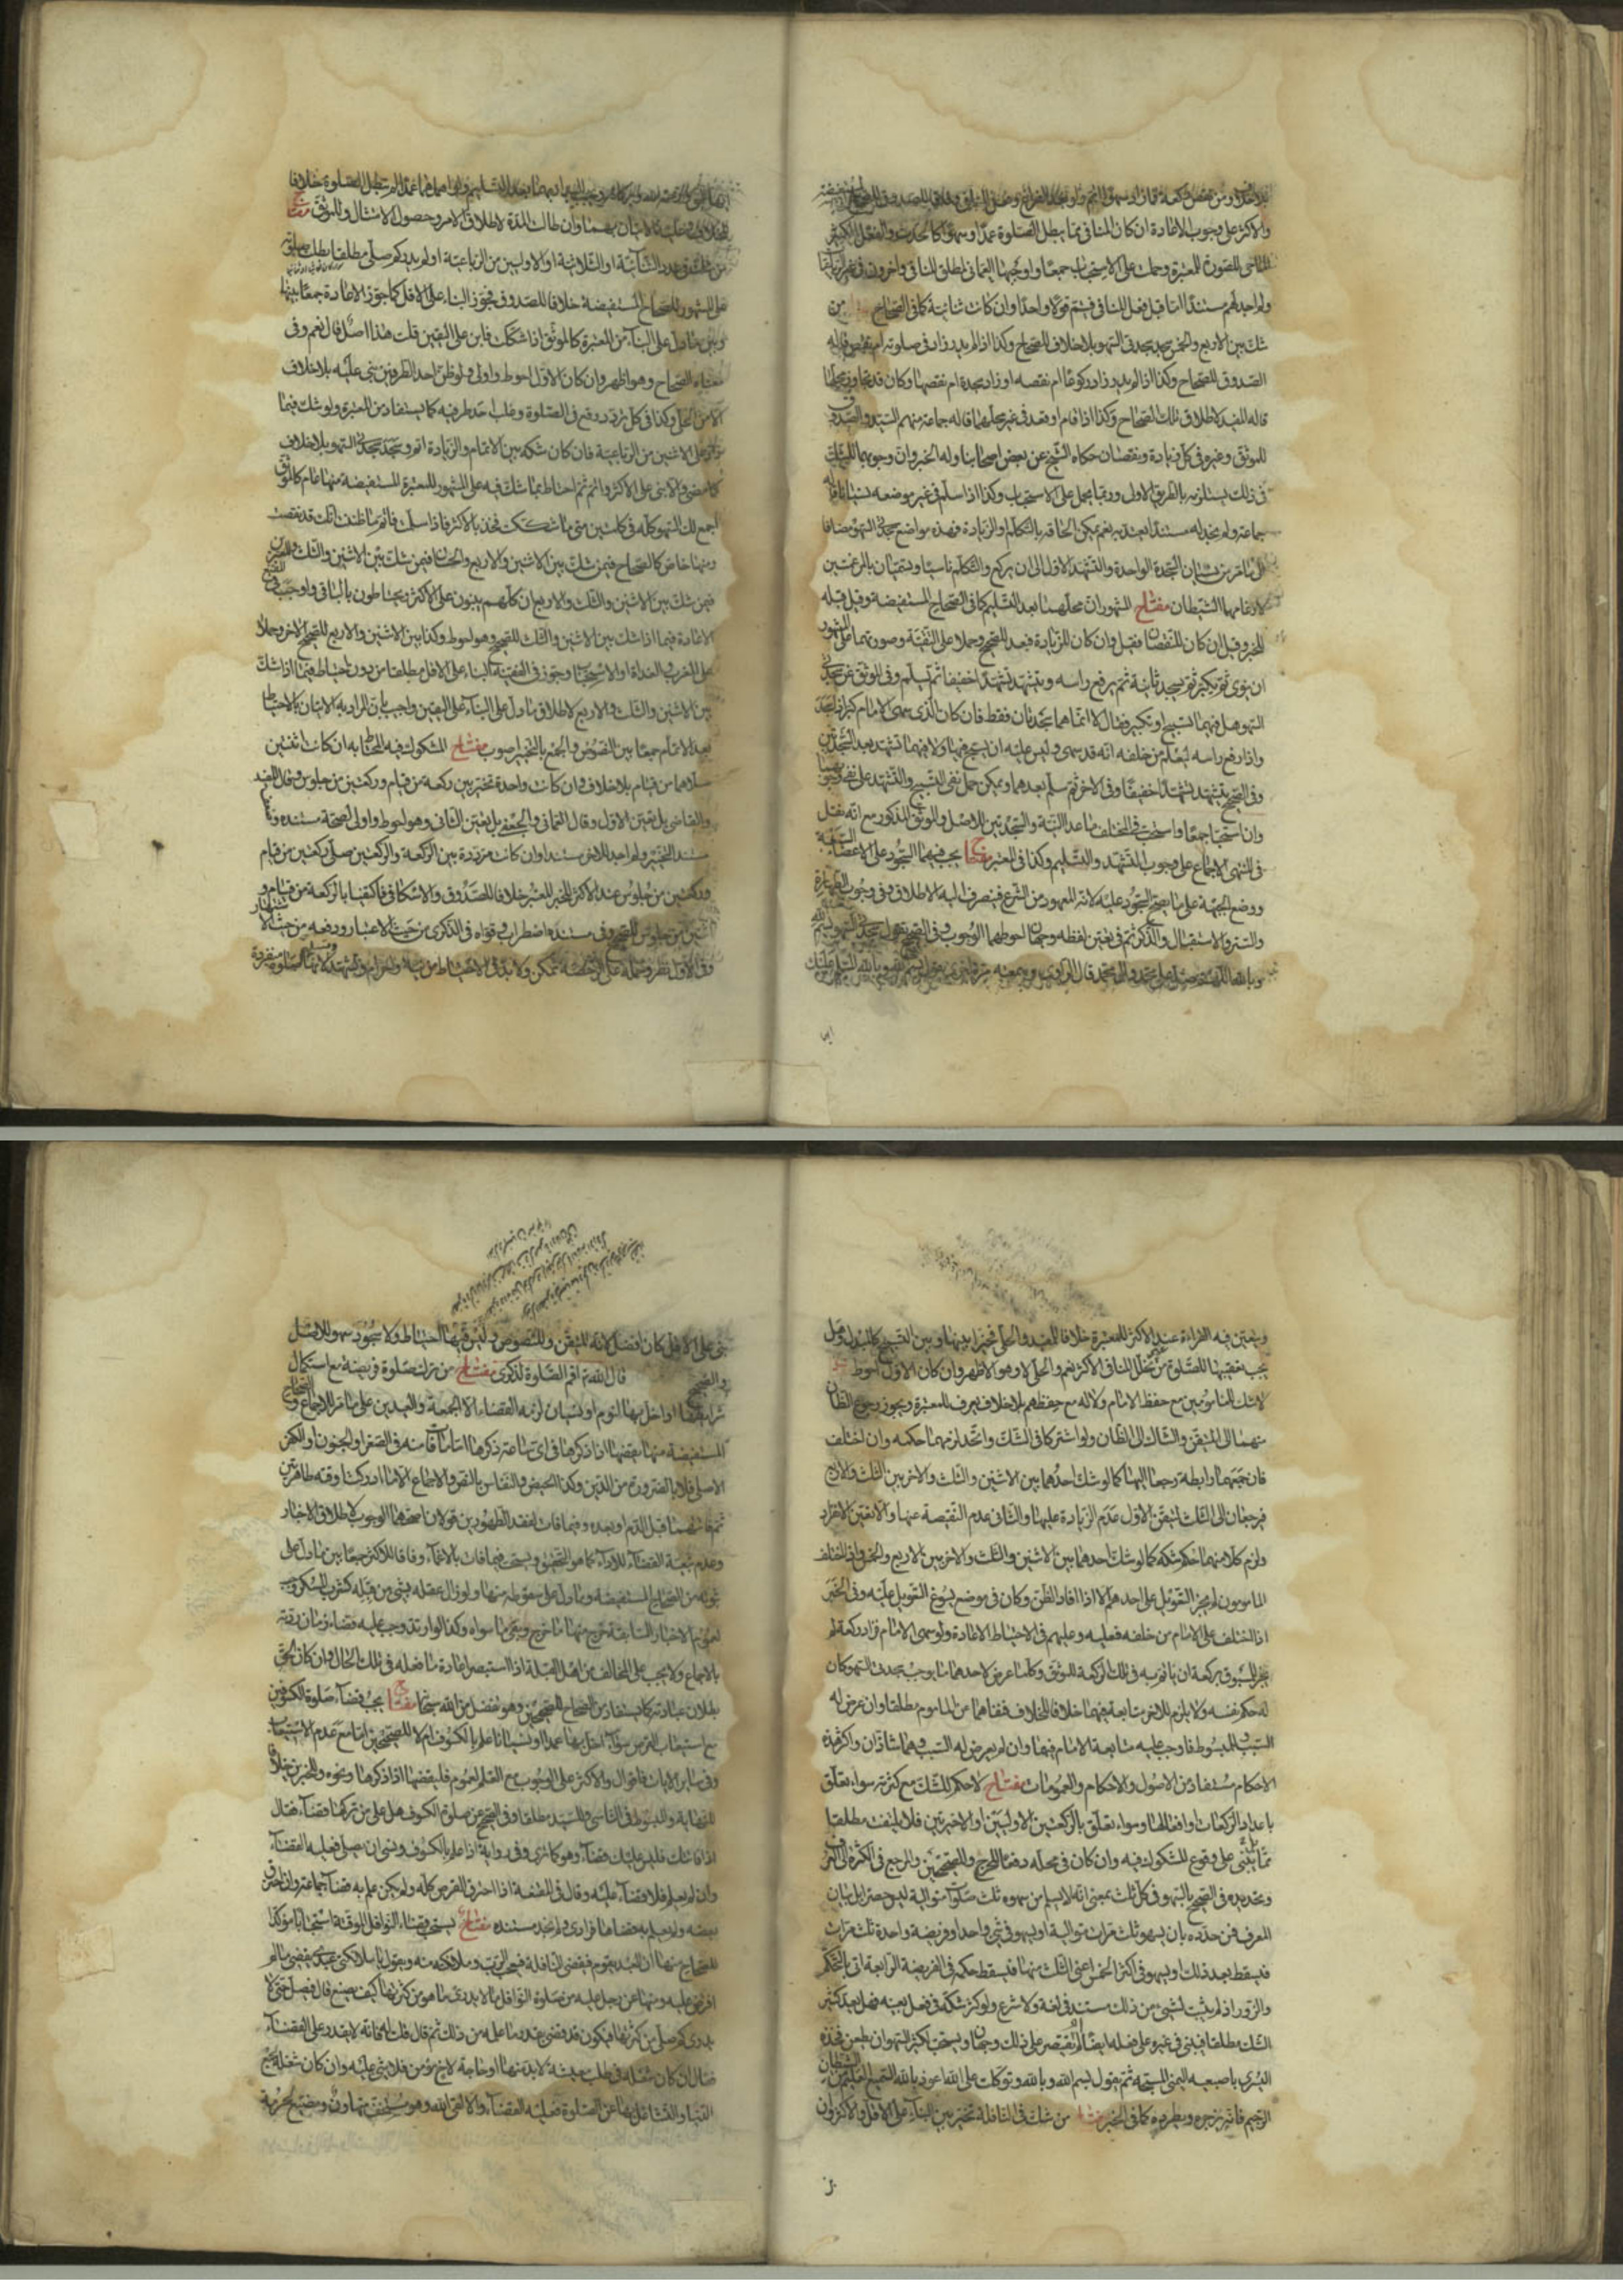 بلا خلاف ومن نقص ركعة فما زاد سهوا اتم ولو بعد الفراغ
والاكثر على وجوب الاعادة ان كان المنافي مما يبطل الصلوة عمدا وسهوا كالحدث والفعل الكثير
للصورة للمعتبرة وحملت على الاستحباب جمعا
ولم اجد لهم مستندا اما قبل فعل المنافي فيتم قولا واحدا وان كانت ثنائية كما في الصحاح من
شك بين الاربع والخمس سجد سجدتي السهو بلا خلاف للصحاح وكذا اذا لم يدر زاد في صلوته ام نقص قاله
الصدوق للصحاح وكذا اذا لم يدر زاد ركوعا ام نقصه او زاد سجدة ام نقصها وكان قد تجاوز محلها
قاله المفيد لاطلاق تلك الصحاح وكذا اذا قام او قعد في غير محلهما قاله جماعة منهم السيد والصدوق
للموثق وغيره وفي كل زيادة ونقصان حكاه الشيخ عن بعض اصحابنا وله الخبر وان وجوبهما للشك
في ذلك يستلزمه بالطريق الاولى وربما يحمل على الاستحباب وكذا اذا سلم في غير موضعه نسيانا قاله
جماعة ولم نجد له مستندا يعتد به نعم يمكن الحاقه بالتكلم او الزيادة فهذه مواضع سجدتي السهو مضافا
الى ما مر من نسيان السجدة الواحدة والتشهد الاول الى ان يركع والتكلم ناسيا ويسميان بالمرغمتين
لارغامهما الشيطان مفتاح المشهور ان محلهما بعد التسليم كما في الصحاح المستفيضة وقيل قبله
للخبر وقيل ان كان للنقصان فقبل وان كان للزيادة فبعد للصحيح وحملا على التقية وصورتهما على المشهور
ان ينوي ثم يكبر ثم يسجد ثانية ثم يرفع راسه ويتشهد تشهدا خفيفا ثم يسلم وفي الموثق عن سجدتي
السهو هل فيهما تسبيح او تكبير فقال لا انما هما سجدتان فقط فان كان الذي سهى الامام كبر اذا سجد
واذا رفع راسه ليعلم من خلفه انه قد سهى وليس عليه ان يسبح فيهما ولا فيهما تشهد بعد السجدتين
وفي الصحيح يتشهد تشهدا خفيفا وفي الاخر ثم سلم بعدهما ويمكن حمل نفي التسبيح والتشهد على نفي وجوبهما
وان استحبا جمعا واستحب في المختلف ما عدا النية والسجدتين للاصل والموثق المذكور مع انه نقل
في المنتهى الاجماع على وجوب التشهد والتسليم وكذا في المعتبر مفتاح يجب فيهما السجود على الاعضاء السبعة
ووضع الجبهة على ما يصح السجود عليه لانه المعهود من الشرع فينصرف اليه الاطلاق وفي وجوب الطهارة
والستر والاستقبال والذكر ثم في تعين لفظه وجهان احوطهما الوجوب وفي الصحيح تقول في سجدتي السهو بسم الله
وبالله اللهم صل على محمد وال محمد قال الراوي وسمعته مرة اخرى يقول بسم الله وبالله السلام عليك
ايها النبي ورحمة الله وبركاته
وان طالت المدة لاطلاق الامر وحصول الامتثال وللموثق مفتاح
من شك في عدد الثنائية او الثلاثية او الاوليين من الرباعية او لم يدر كم صلى مطلقا بطلت صلوته
على المشهور للصحاح المستفيضة خلافا للصدوق فجوز البناء على الاقل كما جوز الاعادة جمعا بينها
وبين ما دل على البناء من المعتبرة كالموثق اذا شككت فابن على اليقين قلت هذا اصل قال نعم وفي
معناه الصحاح وهو اظهر وان كان الاول احوط واولى ولو ظن احد الطرفين بنى عليه بلا خلاف
الا من الحلي وكذا في كل تردد وقع في الصلوة وغلب احد طرفيه كما يستفاد من المعتبرة ولو شك فيما
زاد على الاثنين من الرباعية فان كان شكه بين الاتمام والزيادة اتم وسجد سجدتي السهو بلا خلاف
كما مضى والا بنى على الاكثر واتم ثم احتاط بما شك فيه على المشهور للمعتبرة المستفيضة منها عام كالموثق
اجمع لك السهو كله في كلمتين متى ما شككت فخذ بالاكثر فاذا سلمت فاتم ما ظننت انك قد نقصت
ومنها خاص كالصحاح فيمن شك بين الاثنين والاربع والحسان فيمن شك بين الاثنين والثلث والاربع
فيمن شك بين الاثنين والثلث والاربع ان كلهم يبنون على الاكثر ويحتاطون بالباقي واوجب في المقنع
الاعادة فيما اذا شك بين الاثنين والثلث للصحيح وهو احوط وكذا بين الاثنين والاربع للصحيح الاخر وحملا
على المغرب والغداة او الاستحباب وجوز في الفقيه البناء على الاقل مطلقا من دون احتياط فيما اذا شك
بين الاثنين والثلث والاربع لاطلاق ما دل على البناء على اليقين واجيب بان المراد به الاتيان بالاحتياط
بعد الاتمام جمعا بين النصوص والجمع بالتخيير اصوب مفتاح المشكوك فيه المحتاط به ان كانت اثنتين
صلاهما من قيام بلا خلاف وان كانت واحدة تخير بين ركعة من قيام وركعتين من جلوس وقال المفيد
والقاضي بل بتعين الاول وقال العماني والجعفي بل بتعين الثاني وهو احوط واولى لصحة مستنده وضعف
مستند التخيير ولم اجد للاخر مستندا وان كانت مرددة بين الركعة والركعتين صلى ركعتين من قيام
وركعتين من جلوس عند الاكثر للخبر المعتبر خلافا للصدوق والاسكافي فاكتفيا بالركعة من قيام و
اثنتين من جلوس للصحيح وفي مستنده اضطراب وقواه في الذكرى من حيث الاعتبار ودفعه من حيث الاشتهار
وفي الاول نظر وحمله على الرخصة ممكن ولا بد في الاحتياط من نية واحرام وتشهد لانها صلوة منفردة
ويتعين فيه القراءة عند الاكثر للمعتبرة خلافا للمفيد والحلي فخيرا بينها وبين التسبيح كالمبدل وهل
يجب تعقيبها للصلوة من غير تخلل المنافي الاكثر نعم والحلي لا وهو الاظهر وان كان الاول احوط
لا شك للماموميين مع حفظ الامام ولا له مع حفظهم بلا خلاف يعرف للمعتبرة ويجوز رجوع الظان
منهما الى المتيقن والشاك الى الظان ولو اشتركا في الشك واتحد لزمهما حكمه وان اختلف
فان جمعتهما رابطة رجعا اليها كما لو شك احدهما بين الاثنين والثلث والاخر بين الثلث والاربع
فيرجعان الى الثلث لتيقن الاول عدم الزيادة عليها والثاني عدم النقيصة عنها والا تعين الانفراد
ولزم كلا منهما حكم شكه كما لو شك احدهما بين الاثنين والثلث والاخر بين الاربع والخمس ولو اختلف
المامومون لم يجز التعويل على احدهم الا اذا افاد الظن وكان في موضع يسوغ التعويل عليه وفي الخبر
اذا اختلف على الامام من خلفه فعليه وعليهم في الاحتياط الاعادة ولو سهى الامام فزاد ركعة لم
يجز للمسبوق بركعة ان ياتم به في تلك الركعة للموثق وكلما عرض لاحدهما ما يوجب سجدتي السهو كان
له حكم نفسه ولا يلزم للاخر متابعته فيهما خلافا للخلاف فنفاهما من الماموم مطلقا وان عرض له
السبب وللمبسوط فاوجب عليه متابعة الامام فيهما وان لم يعرض له السبب وهما شاذان واكثر هذه
الاحكام مستفاد من الاصول والاحكام والعمومات مفتاح لا حكم للشك مع كثرته سواء تعلق
باعداد الركعات او افعالها وسواء تعلق بالركعتين الاوليين او الاخيرتين فلا يلتفت مطلقا
بل يبنى على وقوع المشكوك فيه وان كان في محله دفعا للحرج وللصحيحين والمرجع في الكثرة الى العرف
وتحديده في الصحيح بالسهو في كل ثلث بمعنى انه لا يسلم من سهوه ثلث صلوات متوالية ليس حصرا بل بيان
للعرف فمن حدده بان يسهو ثلث مرات متوالية او يسهو في شئ واحد او فريضة واحدة ثلث مرات
فيسقط بعد ذلك او يسهو في اكثر الخمس اعني الثلث منها فيسقط حكمه في الفريضة الرابعة اتى بالتحكم
والزور اذ لم يثبت لشئ من ذلك مستند في لغة ولا شرع ولو كثر شكه في فعل بعينه فهل يعد كثير
الشك مطلقا فيبنى في غيره على فعله ايضا ام يقتصر على ذلك وجهان ويستحب لكثير السهو ان يطعن فخذه
اليسرى باصبعه اليمنى المسبحة ثم يقول بسم الله وبالله وتوكلت على الله اعوذ بالله السميع العليم من الشيطان
الرجيم فانه يزجره ويطرده كما في الخبر مفتاح من شك في النافلة تخير بين البناء على الاقل والاكثر وان
بنى على الاقل كان افضل لانه المتيقن وللنصوص وليس فيها احتياط ولا سجود سهو للاصل
والصحيح قال الله تع اقم الصلوة لذكري مفتاح من ترك صلوة فريضة مع استكمال
شرايطها او اخل بها لنوم او نسيان لزمه القضاء الا الجمعة والعيدين على ما مر للاجماع والصحاح
المستفيضة منها يقضيها اذا ذكرها في اي ساعة ذكرها اما ما فاته في الصغر والجنون والكفر
الاصلي فلا بالضرورة من الدين وكذا الحيض والنفاس بالنص والاجماع الا ما ادركتا وقته طاهرتين
وفيما فات لفقد الطهورين قولان اصحهما الوجوب لاطلاق الاخبار
وعدم تبعية القضاء للاداء كما هو التحقيق ويستحب فيما فات بالاغماء وفاقا للاكثر جمعا بين ما دل على
ثبوته من الصحاح المستفيضة وما دل على سقوطه منها ولو زال عقله بشئ من قبله كشرب المسكر وجب
لعموم الاخبار السابقة خرج منها ما خرج وبقي ما سواه وكذا لو ارتد وجب عليه قضاء زمان ردته
بالاجماع ولا يجب على المخالف من اهل القبلة اذا استبصر اعادة ما فعله في تلك الحال وان كان الحق
بطلان عبادته كما يستفاد من الصحاح الصحيحين وهو تفضل من الله سبحانه مفتاح يجب قضاء صلوة الكسوفين
مع استيعاب القرص سواء اخل بها عمدا او نسيانا علم بالكسوف ام لا للصحيحين اما مع عدم الاستيعاب
وفي ساير الايات فاقوال والاكثر على الوجوب مع العلم لعموم فليقضها اذا ذكرها ونحوه وللخبرين خلافا
للنهاية والمبسوط في الناسي وللسيد مطلقا وفي الصحيح عن صلوة الكسوف هل على من تركها قضاء فقال
اذا فاتتك فليس عليك قضاء وهو كما ترى وفي رواية اذا علم بالكسوف ونسي ان يصلي فعليه القضاء
وان لم يعلم فلا قضاء عليه وقال في المقنعة اذا احترق القرص كله ولم يكن علم به قضاه جماعة وان احترق
بعضه ولم يعلم به قضاها فرادى ولم نجد مستنده مفتاح يستحب قضاء النوافل الموقتة استحبابا مؤكدا
للصحاح منها ان العبد يقوم فيقضي النافلة فيعجب الرب وملائكته منه ويقول يا ملائكتي عبدي يقضي ما لم
افرض عليه ومنها عن رجل عليه من صلوة النوافل ما لا يدري ما هو من كثرتها كيف يصنع قال فيصل حتى لا
يدري كم صلى من كثرتها فيكون قد قضى بقدر ما عليه من ذلك ثم قال قلت له فانه لا يقدر على القضاء
فقال ان كان شغله في طلب معيشة لا بد منها او حاجة لاخ مؤمن فلا شئ عليه وان كان شغله لجمع
الدنيا والتشاغل بها عن الصلوة فعليه القضاء والا لقى الله وهو مستخف متهاون مضيع لحرمة